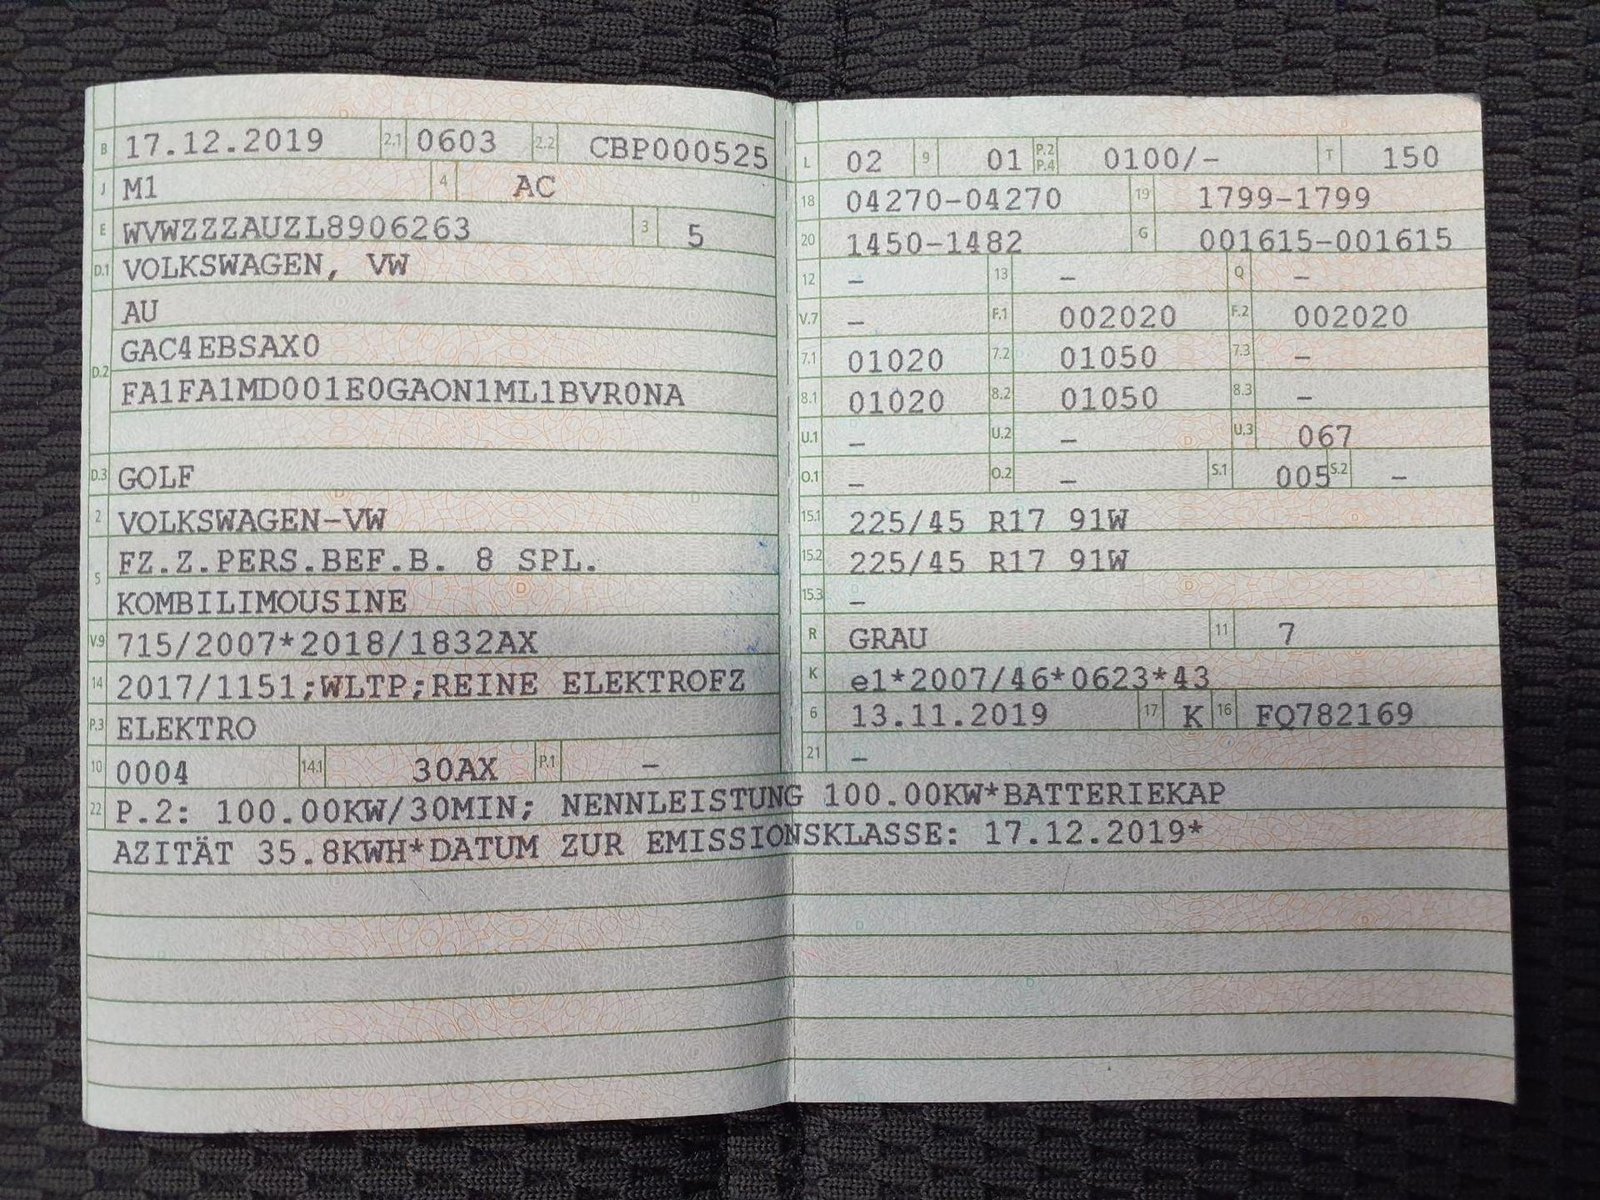 B 17.12.2019 2.1 0603 2.2 CBP000525
J M1 4 AC
E WVWZZZAUZL8906263 3 5
D.1 VOLKSWAGEN, VW
AU
D.2 GAC4EBSAX0
FA1FA1MD001E0GAON1ML1BVR0NA
D.3 GOLF
2 VOLKSWAGEN-VW
5 FZ.Z.PERS.BEF.B. 8 SPL.
KOMBILIMOUSINE
V9 715/2007*2018/1832AX
14 2017/1151;WLTP;REINE ELEKTROFZ
P.3 ELEKTRO
10 0004 14.1 30AX P.1 –
L 02 9 01 P.2 P.4 0100/- T 150
18 04270-04270 19 1799-1799
20 1450-1482 G 001615-001615
12 – 13 – Q –
V.7 – F.1 002020 F.2 002020
7.1 01020 7.2 01050 7.3 –
8.1 01020 8.2 01050 8.3 –
U.1 – U.2 – U.3 067
O.1 – O.2 – S.1 005 S.2 –
15.1 225/45 R17 91W
15.2 225/45 R17 91W
15.3 –
R GRAU 11 7
K e1*2007/46*0623*43
6 13.11.2019 17 K 16 FQ782169
21 –
22 P.2: 100.00KW/30MIN; NENNLEISTUNG 100.00KW*BATTERIEKAP
AZITÄT 35.8KWH*DATUM ZUR EMISSIONSKLASSE: 17.12.2019*